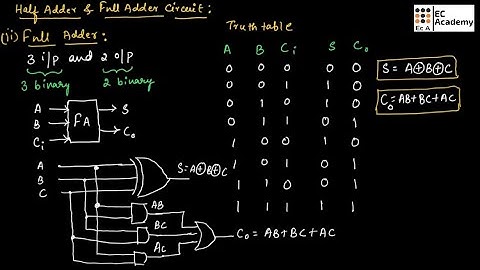 Half Adder & Full Adder Circuit:
(ii) Full Adder:
3 i/p and 2 o/p
3 binary 2 binary
A
B
Ci
FA
S
Co
A
B
C
S = A⊕B⊕C
AB
BC
AC
Co = AB+BC+AC
Truth table
A B Ci S Co
0 0 0 0 0
0 0 1 1 0
0 1 0 1 0
0 1 1 0 1
1 0 0 1 0
1 0 1 0 1
1 1 0 0 1
1 1 1 1 1
S = A⊕B⊕C
Co = AB+BC+AC
EcA
EC
Academy